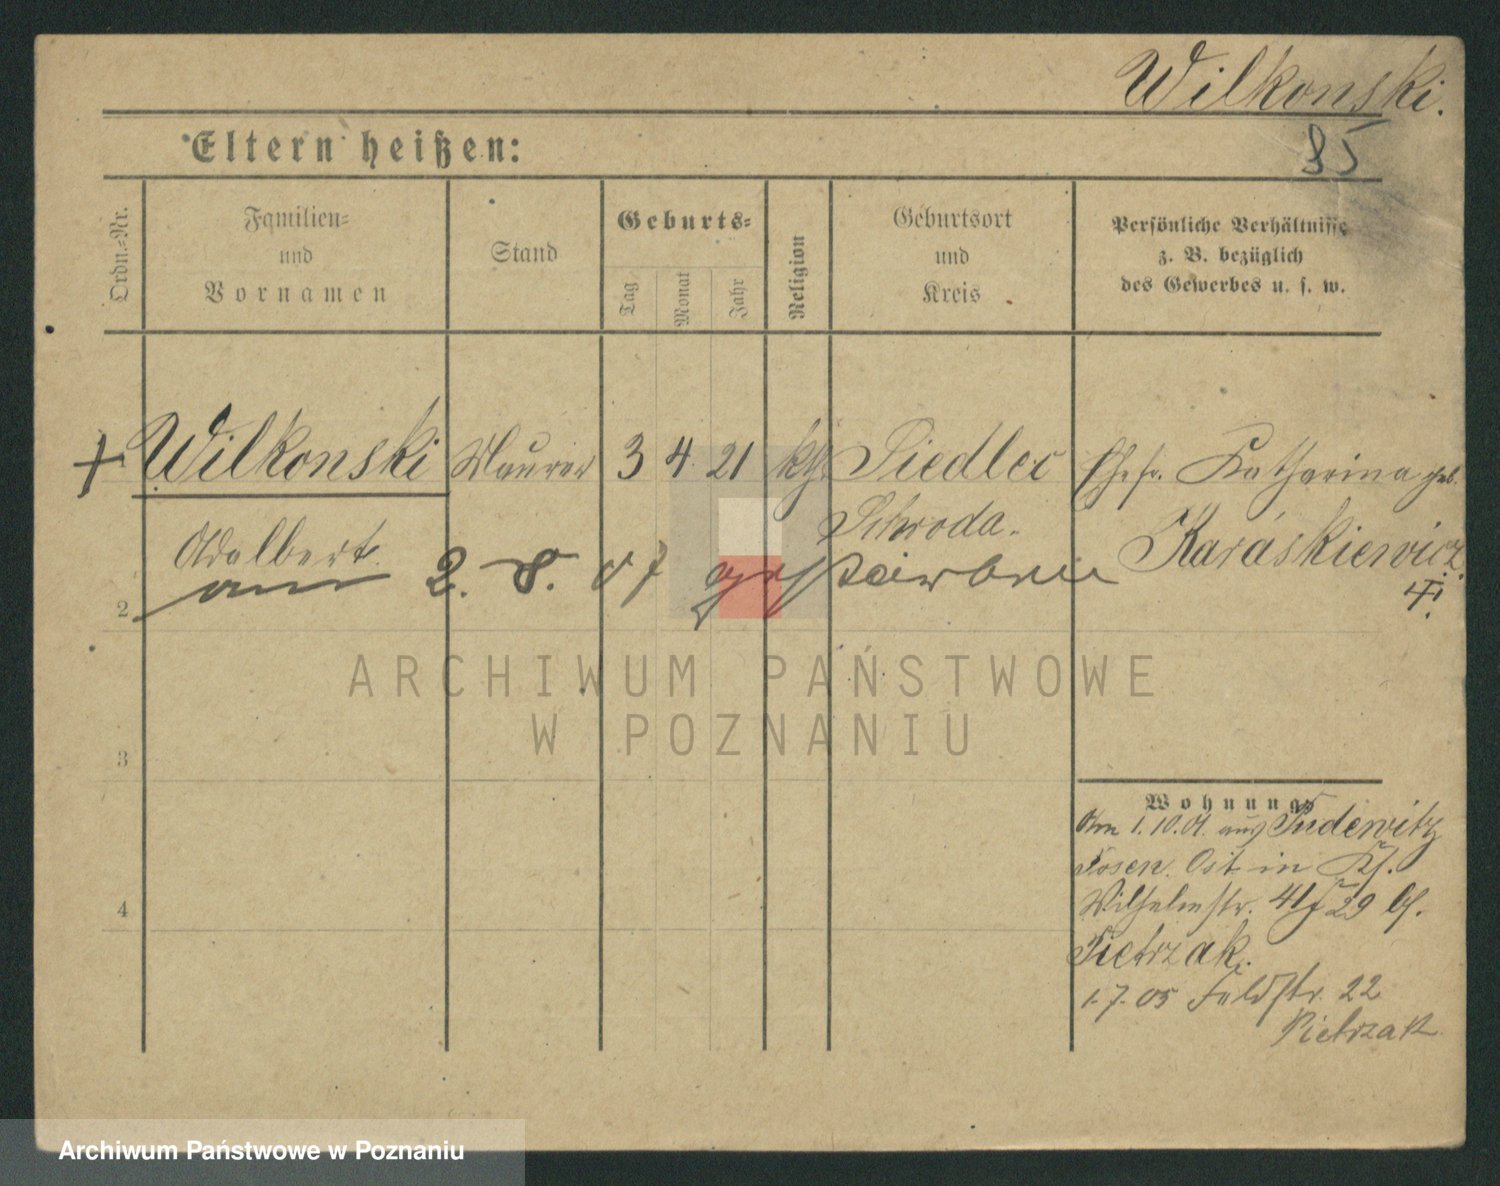 Wilkonski.
Eltern heißen:
85
Ordn.-Nr.
Familien-
und
Vornamen
Stand
Geburts-
Tag
Monat
Jahr
Religion
Geburtsort
und
Kreis
Persönliche Verhältnisse
z. B. bezüglich
des Gewerbes u. s. w.
+ 1 Wilkonski Maurer 3 4. 21 kth. Siedlec Ehefr. Katharina geb.
Adalbert. Schroda. Karáskiewicz.
am 2. 8. 07 gestorben
2
ARCHIWUM PAŃSTWOWE
W POZNANIU
3
Wohnung
Am 1.10.01. aus Pudewitz
Posen. Ost in
Wilhelmstr. 29 b/.
Pietrzak.
4
1.7.05 Feldstr. 22
Pietrzak
Archiwum Państwowe w Poznaniu